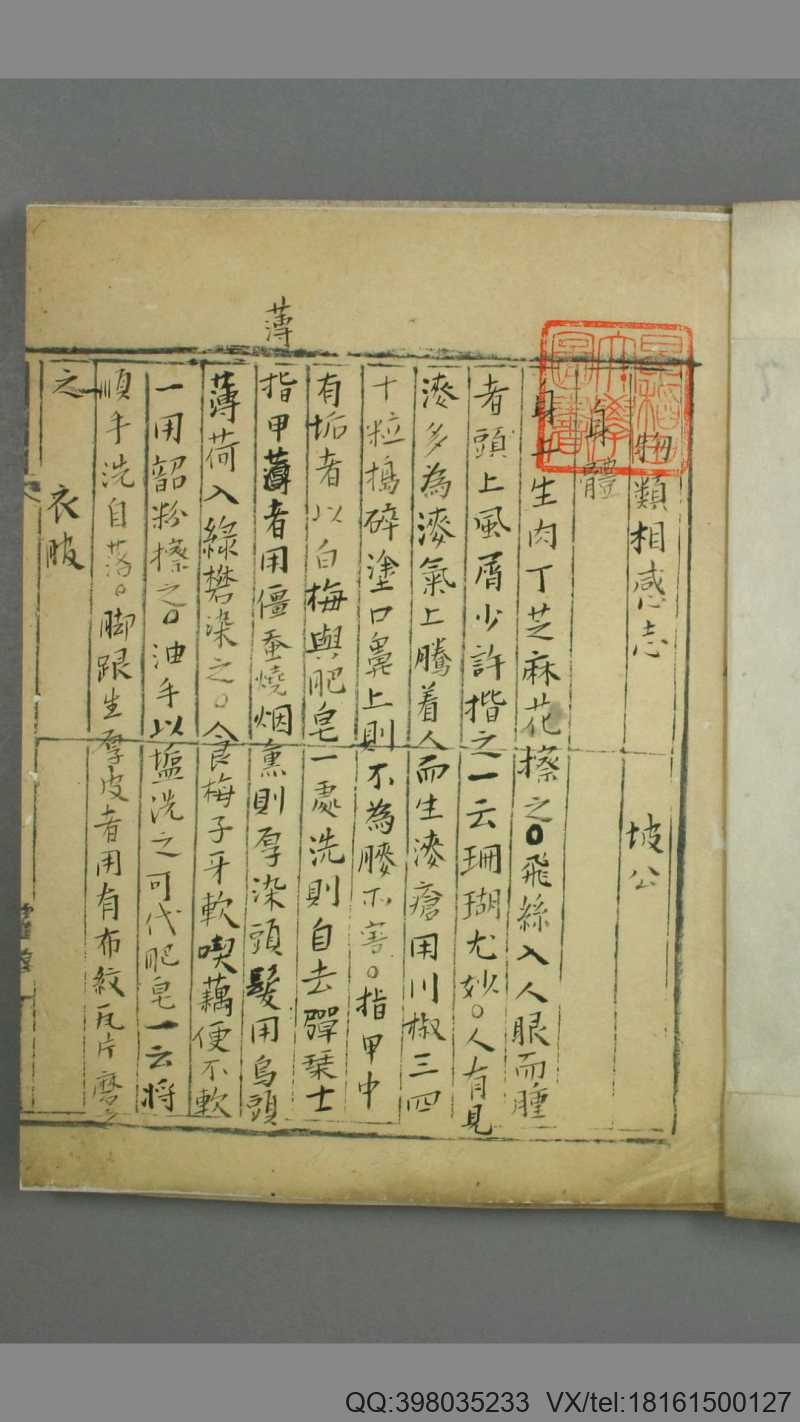 物類相感志 坡公
身體
身上生肉丁芝麻花擦之○飛絲入人眼而腫
者頭上風屑少許揩之一云珊瑚尤妙○人有見
漆多為漆氣上騰着人而生漆瘡用川椒三四
十粒搗碎塗口鼻上則不為膠所害○指甲中
有垢者以白梅與肥皂一處洗則自去彈琹士
薄
指甲薄者用僵蚕燒烟熏則厚染頭髮用烏頭
薄荷入綠礬染之○食梅子牙軟喫藕便不軟
一用韶粉擦之○油手以塩洗之可代肥皂一云將
順手洗自落○脚跟生厚皮者用有布紋瓦片磨
之 衣服
QQ:398035233 VX/tel:18161500127